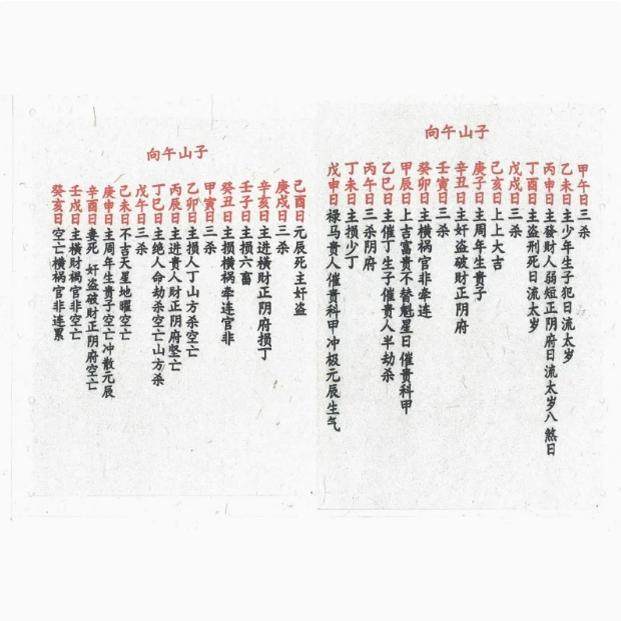 向午山子
甲午日三杀
乙未日主少年生子犯日流太岁
丙申日主發财人弱短正阴府日流太岁八煞日
丁酉日主盗刑死日流太岁
戊戌日三杀
己亥日上上大吉
庚子日主周年生贵子
辛丑日主奸盗破财正阴府
壬寅日三杀
癸卯日主横祸官非牵连
甲辰日上吉富贵不替魁星日催贵科甲
乙巳日主催丁生子催贵人半劫杀
丙午日三杀阴府
丁未日主损少丁
戊申日禄马贵人催贵科甲冲极元辰生气
向午山子
己酉日元辰死主奸盗
庚戌日三杀
辛亥日主进横财正阴府损丁
壬子日主损六畜
癸丑日主损横祸牵连官非
甲寅日三杀
乙卯日主损人丁山方杀空亡
丙辰日主进贵人财正阴府坚亡
丁巳日主绝人命劫杀空亡山方杀
戊午日三杀
己未日不吉天星地曜空亡
庚申日主周年生贵子空亡冲散元辰
辛酉日妻死 奸盗破财正阴府空亡
壬戌日主横财祸官非空亡
癸亥日空亡横祸官非连累